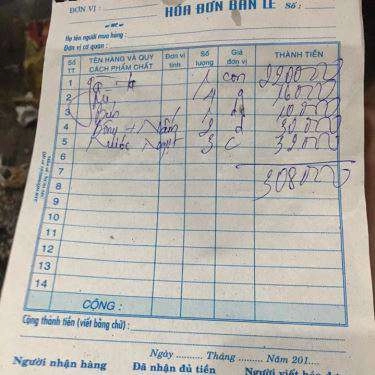 ĐƠN VỊ : HÓA ĐƠN BÁN LẺ Số :
Họ tên người mua hàng :
Đơn vị cơ quan :
Số TT TÊN HÀNG VÀ QUY CÁCH PHẨM CHẤT Đơn vị tính Số lượng Giá đơn vị THÀNH TIỀN
1 1 con 220000
2 4 16000
3 Bún 1 10000
4 Nấm 2 đ 30000
5 Nước Ngọt 3 c 32000
6
7 308000
8
9
10
11
12
13
14
CỘNG :
Cộng thành tiền (viết bằng chữ) :
Ngày Tháng Năm 201
Người nhận hàng Đã nhận đủ tiền Người viết hóa đơn